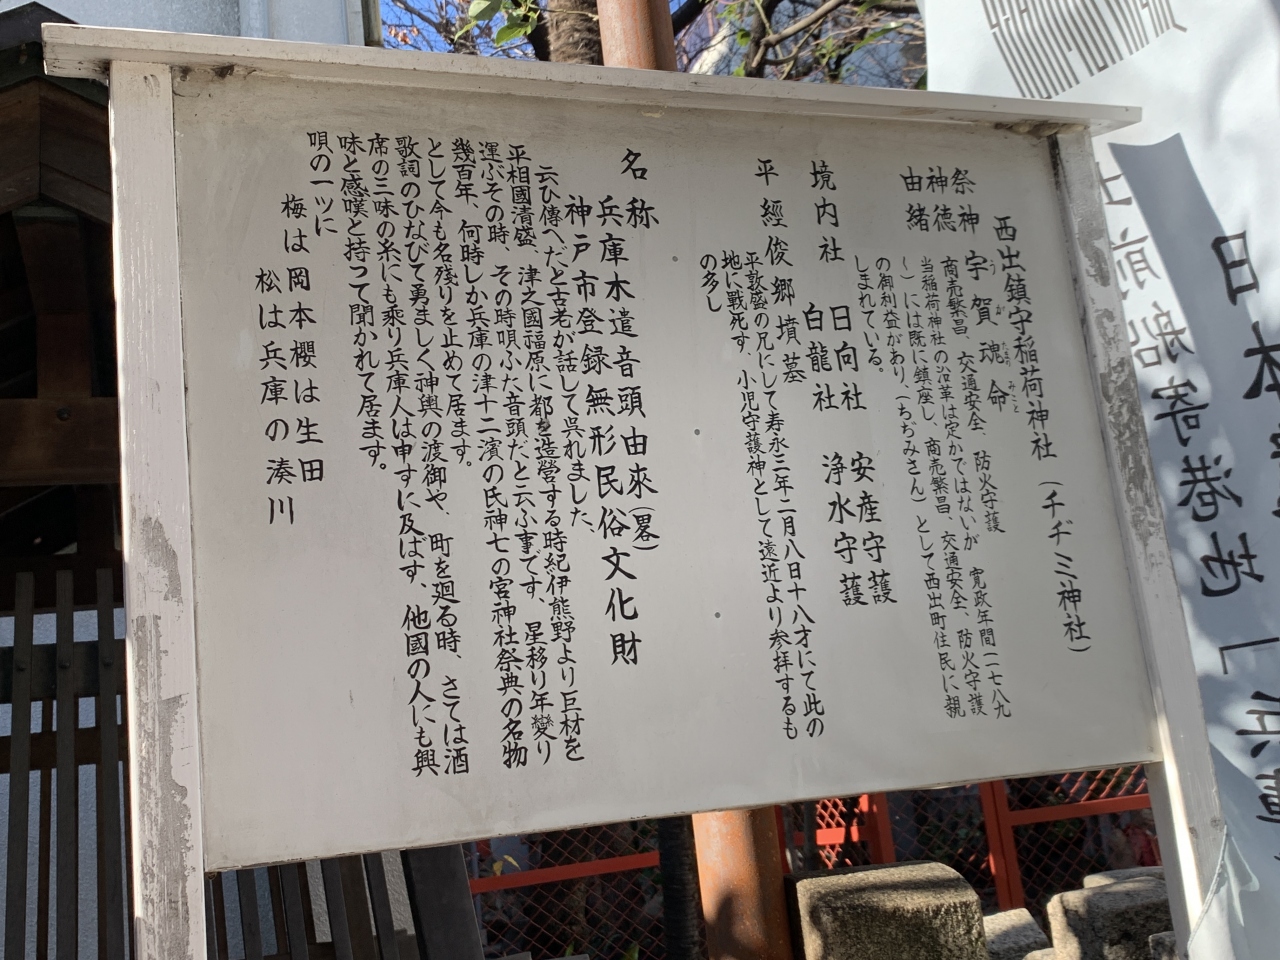 西出鎮守稲荷神社 (チヂミ神社)
祭神 宇賀魂命
うがたまりみこと
神徳 商売繁昌、交通安全、防火守護
由緒 当稲荷神社の沿革は定かではないが 寛政年間(一七八九
〜)には既に鎮座し、商売繁昌、交通安全、防火守護
の御利益があり、(ちぢみさん)として西出町住民に親
しまれている。
境内社 日向社 安産守護
白龍社 浄水守護
平經俊郷墳墓
平敦盛の兄にして寿永三年二月八日十八才にて此の
地に戰死す、小児守護神として遠近より参拝するも
の多し
名称 兵庫木遣音頭由來(畧)
神戸市登録無形民俗文化財
云ひ傳へたと古老が話して呉れました、
平相國清盛、津之國福原に都を造營する時紀伊熊野より巨材を
運ぶその時、その時唄ふた音頭だと云ふ事です、星移り年變り
幾百年、何時しか兵庫の津十二濱の氏神七の宮神社祭典の名物
として今も名殘りを止めて居ます。
歌詞のひなびて勇ましく神輿の渡御や、町を廻る時、さては酒
席の三味の糸にも乘り兵庫人は申すに及ばず、他國の人にも興
味と感嘆と持つて聞かれて居ます。
唄の一ツに
梅は岡本櫻は生田
松は兵庫の湊川
日本
出前船寄港地「兵庫